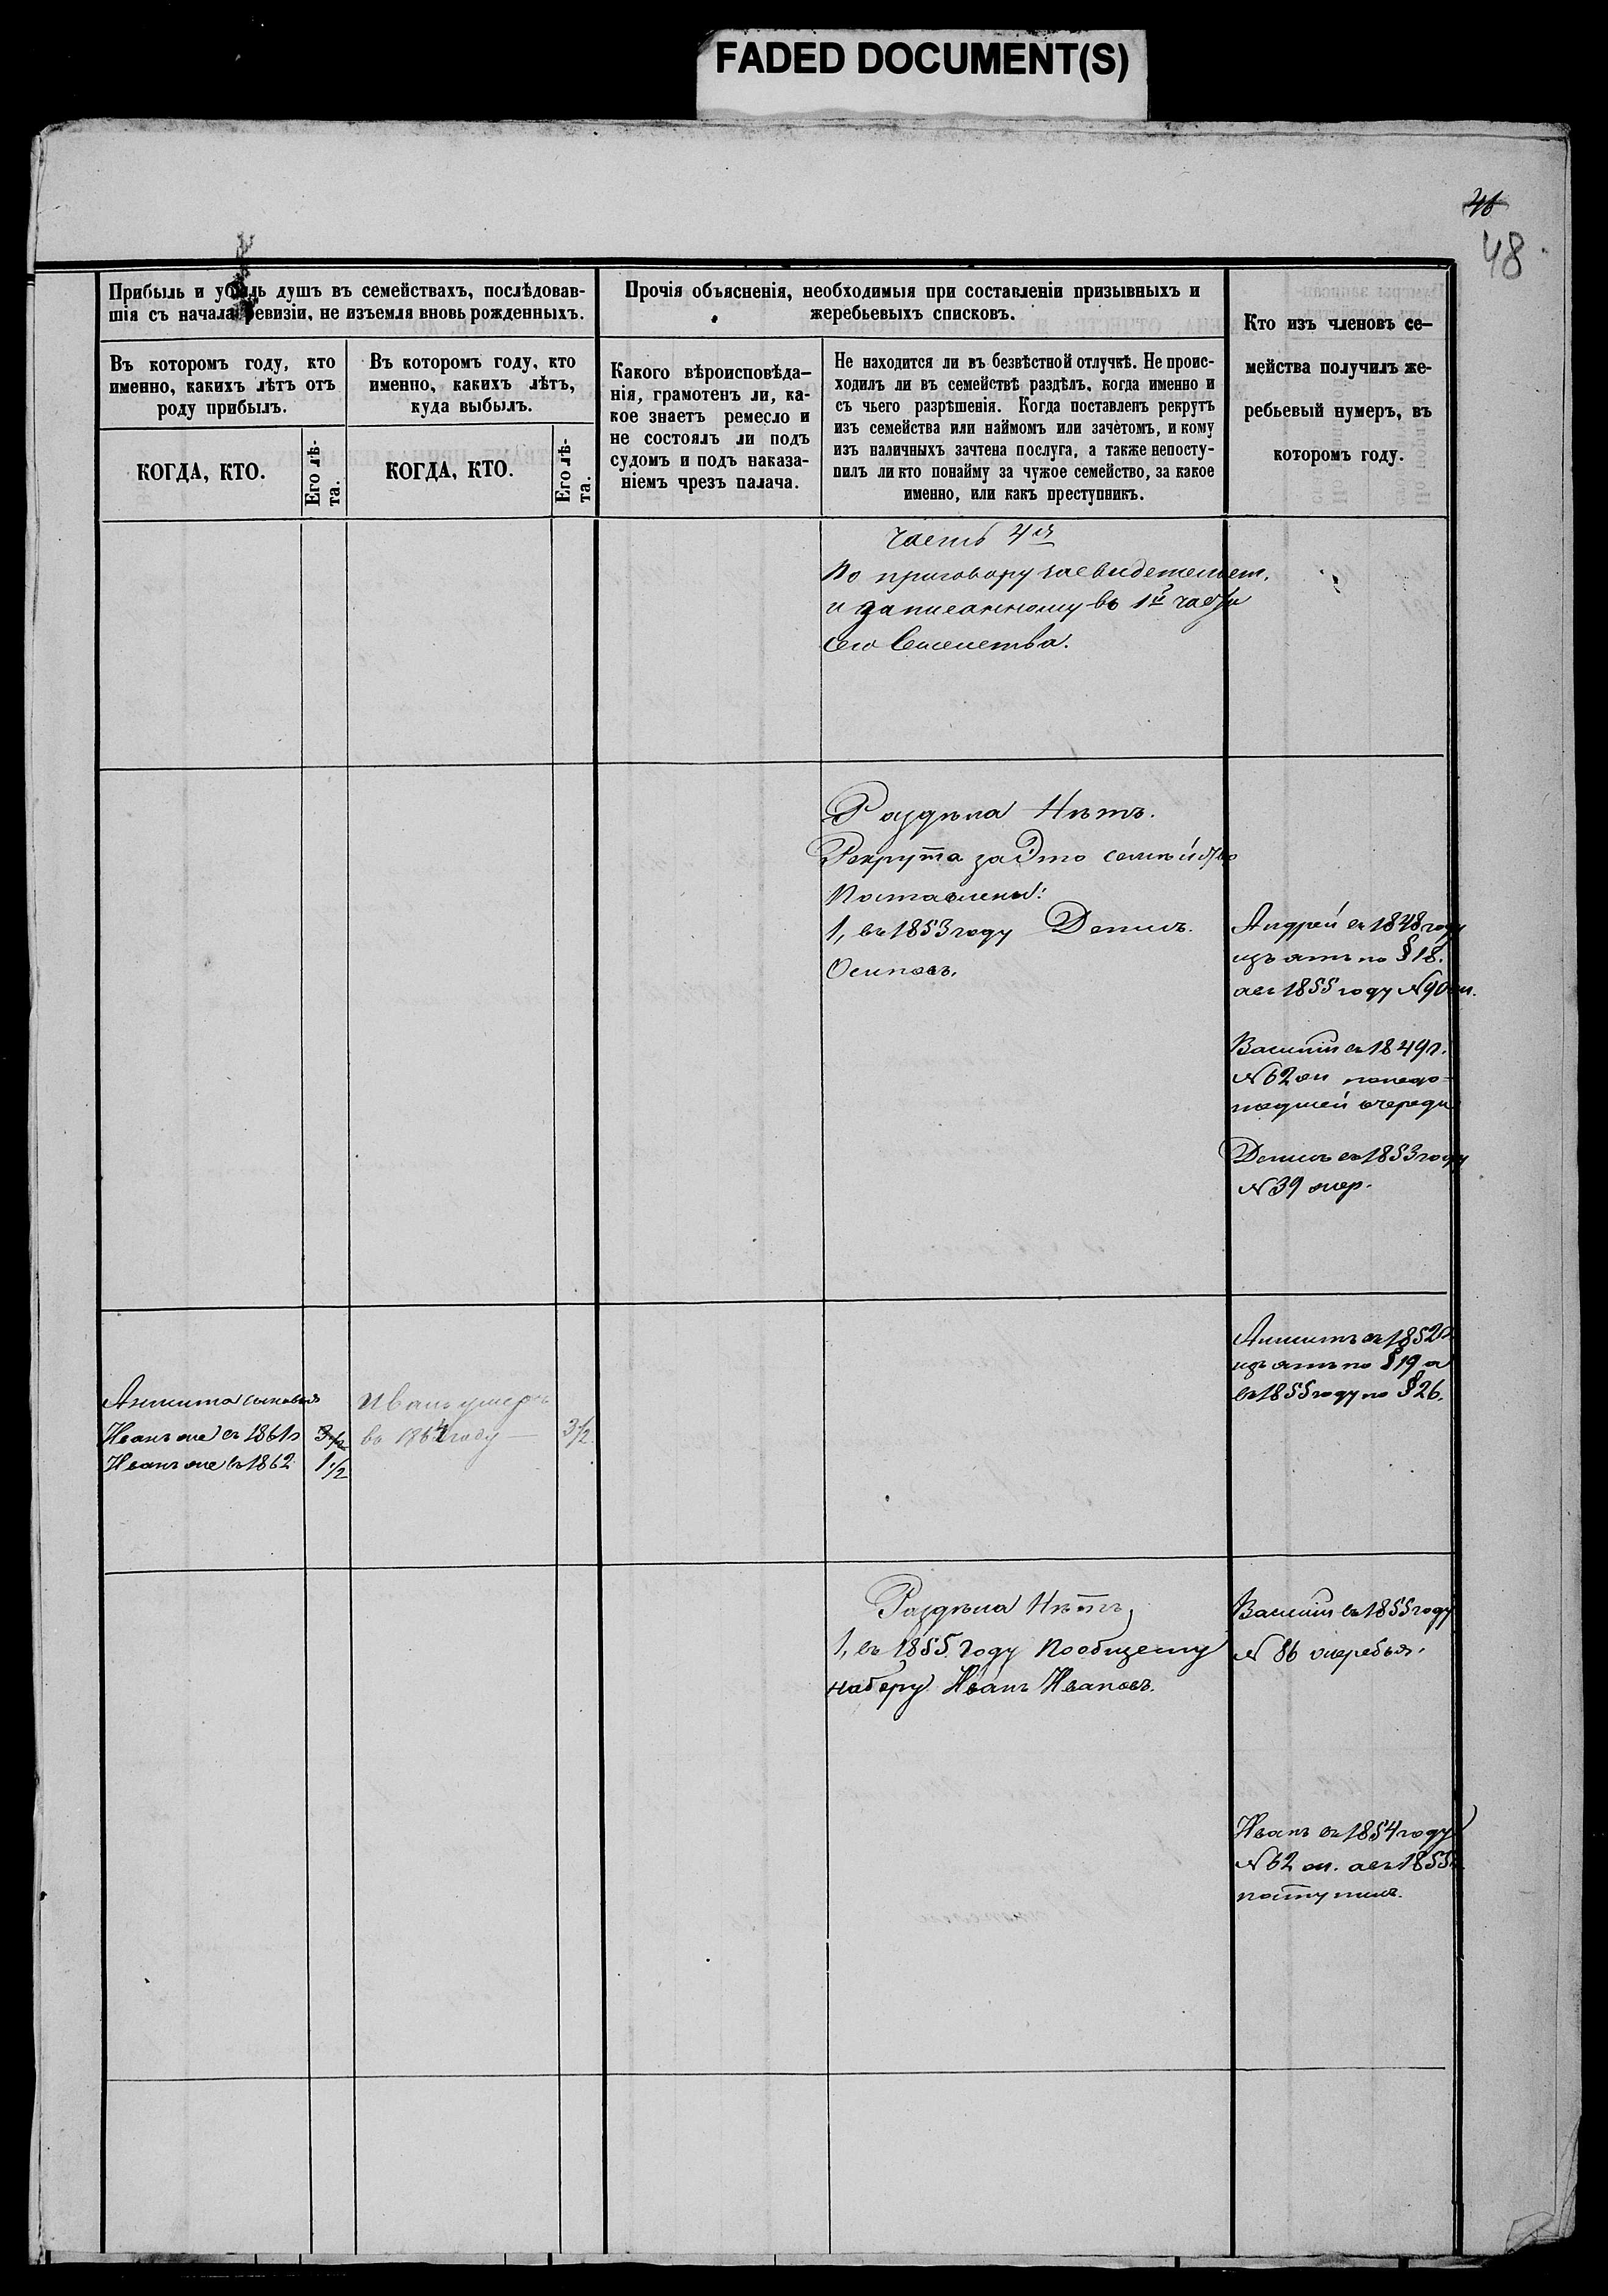 FADED DOCUMENT(S)
46
48
Прибыль и убыль душъ въ семействахъ, послѣдовав-
шія съ начала ревизіи, не изъемля вновь рожденныхъ.
Въ которомъ году, кто
именно, какихъ лѣтъ отъ
роду прибылъ.
КОГДА, КТО.
Его лѣ-
та.
Въ которомъ году, кто
именно, какихъ лѣтъ,
куда выбылъ.
КОГДА, КТО.
Его лѣ-
та.
Прочія объясненія, необходимыя при составленіи призывныхъ и
жеребьевыхъ списковъ.
Какого вѣроисповѣда-
нія, грамотенъ ли, ка-
кое знаетъ ремесло и
не состоялъ ли подъ
судомъ и подъ наказа-
ніемъ чрезъ палача.
Не находится ли въ безвѣстной отлучкѣ. Не проис-
ходилъ ли въ семействѣ раздѣлъ, когда именно и
съ чьего разрѣшенія. Когда поставленъ рекрутъ
изъ семейства или наймомъ или зачетомъ, и кому
изъ наличныхъ зачтена послуга, а также непосту-
пилъ ли кто понайму за чужое семейство, за какое
именно, или какъ преступникъ.
Кто изъ членовъ се-
мейства получилъ же-
ребьевый нумеръ, въ
которомъ году.
Часть 4я
По приговору засвидетельст.
и записанному въ 1й части
сего Семейства.
Раздѣла Нѣтъ.
Рекрута за Это семѣйство
Поставлены:
1, въ 1853 году Денисъ
Осиповъ.
Андрей въ 1848 году
изъятъ по § 18.
а въ 1855 году №90
Василій въ 1849 г.
№ 62
очереди
Денисъ въ 1853 году
№ 39 жер.
въ 1852 г
изъятъ по § 19 а
въ 1855 году по § 26.
сыновья
Иванъ въ 1861 г 3 1/2
Иванъ въ 1862 1 1/2
Иванъ умеръ
въ 1864 году — 3 1/2
Раздѣла Нѣтъ,
1, въ 1855 году По общему
набору Иванъ Ивановъ.
Василій въ 1855 году
№ 86 жеребья.
Иванъ въ 1854 году
№ 62 а въ 1855
поступилъ.